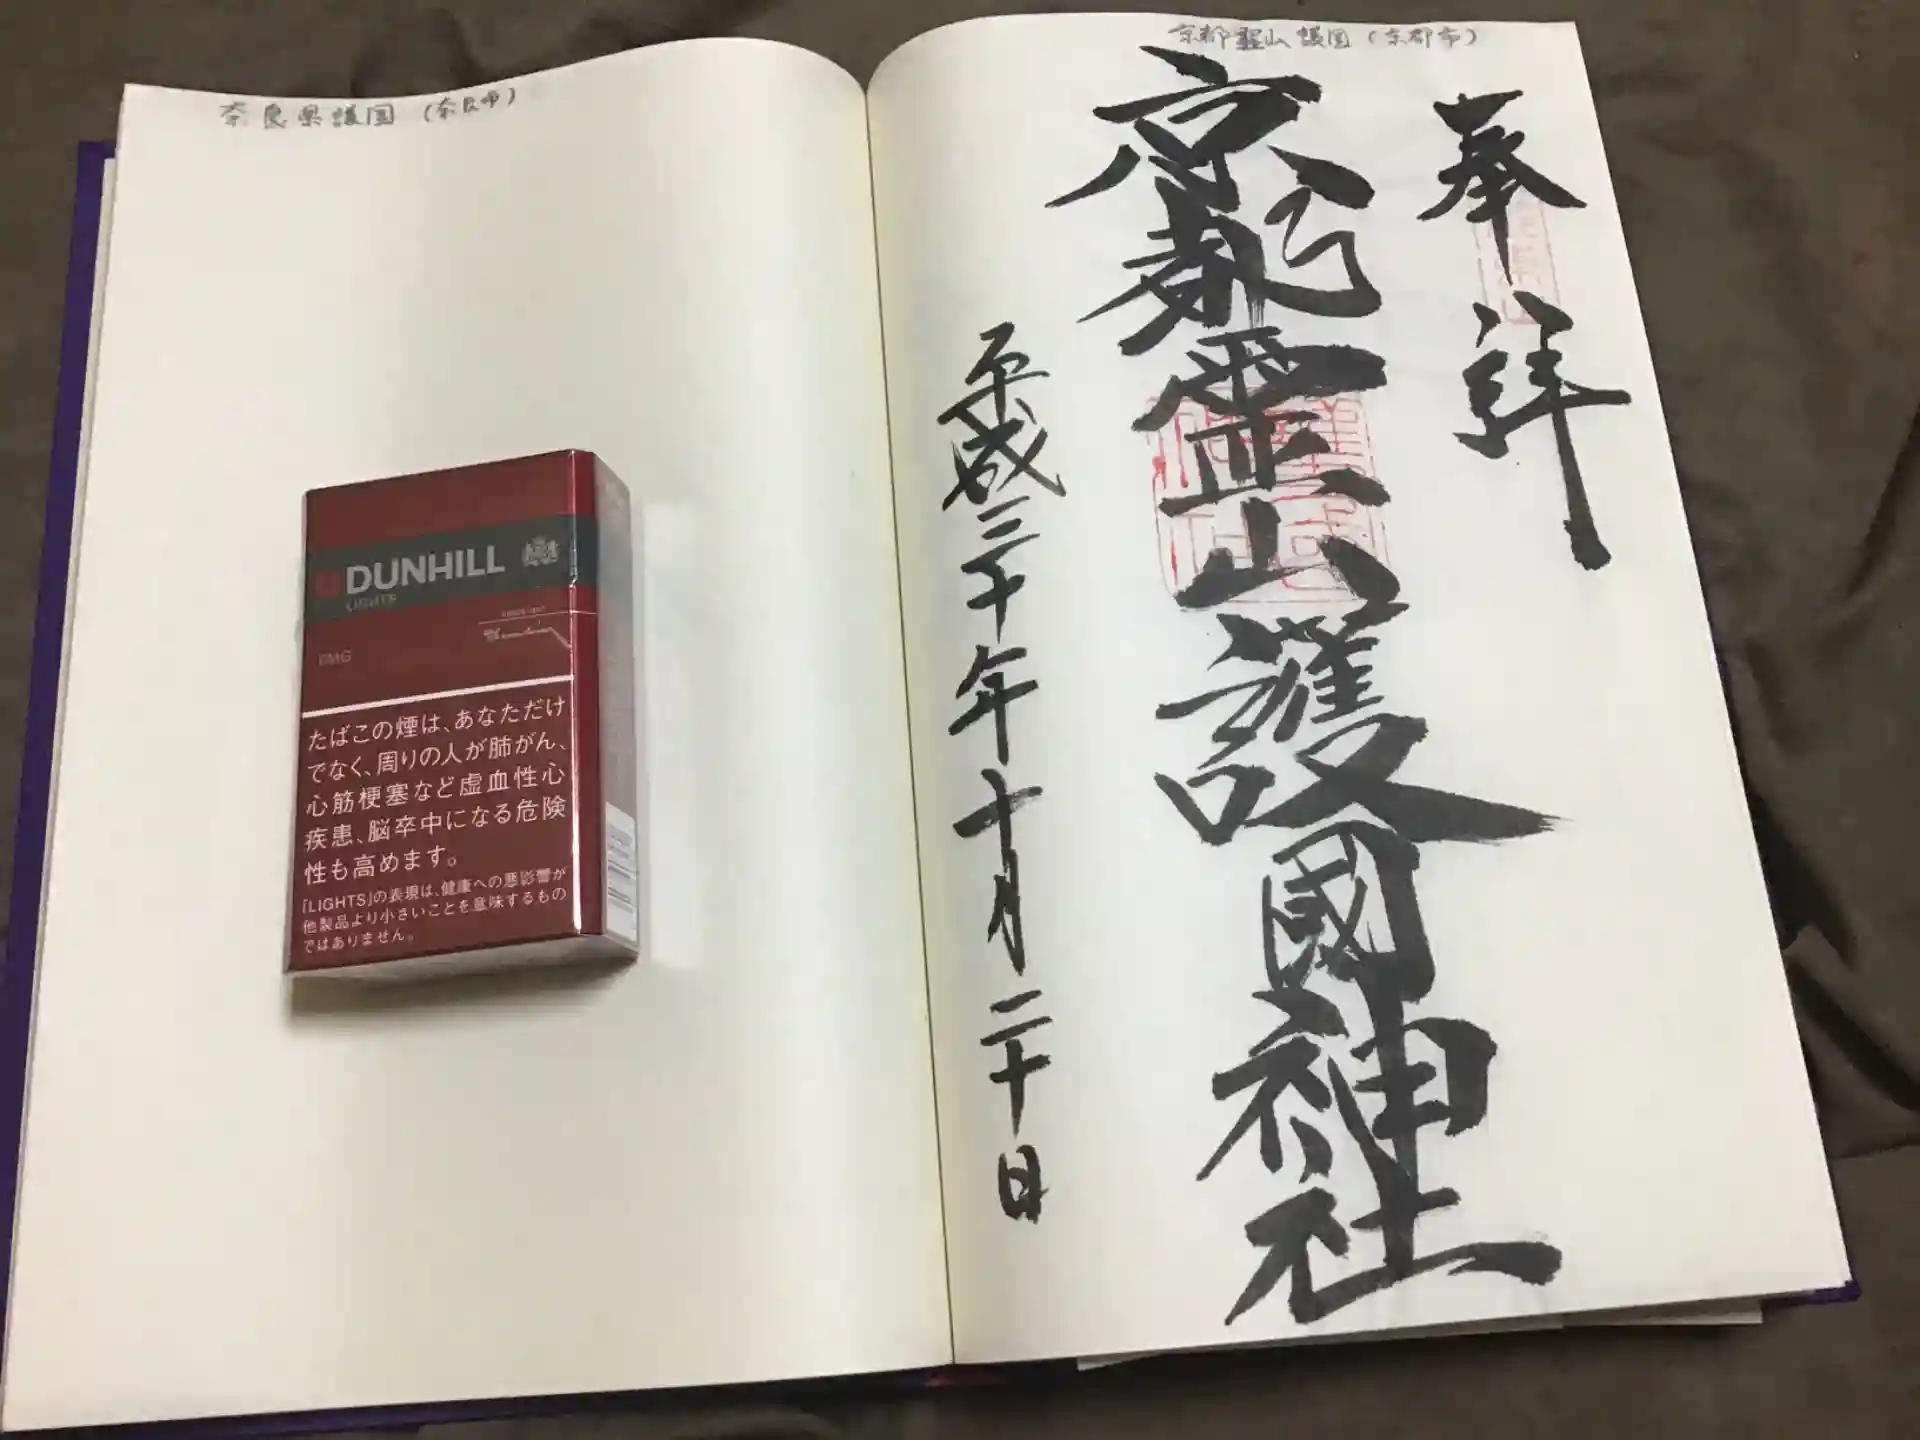 京都霊山護国(京都市)
奉拝
京都霊山護國神社
平成三十年十月二十日
奈良県護国(奈良市)
DUNHILL
LIGHTS
6MG
たばこの煙は、あなただけ
でなく、周りの人が肺がん、
心筋梗塞など虚血性心
疾患、脳卒中になる危険
性も高めます。
「LIGHTS」の表現は、健康への悪影響が
他製品より小さいことを意味するもの
ではありません。